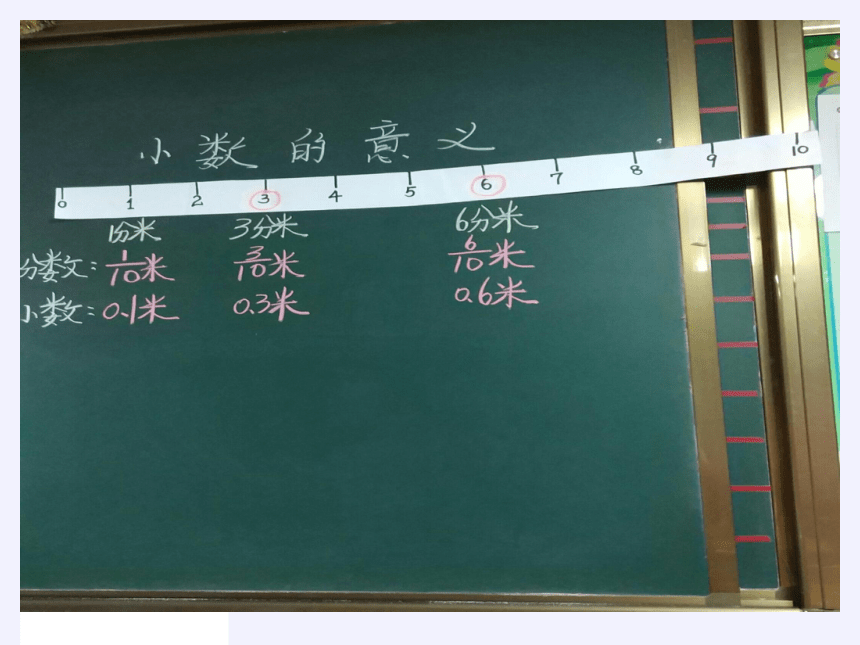 小数的意义
0 1 2 3 4 5 6 7 8 9 10
1分米 3分米 6分米
分数: 1/10米 3/10米 6/10米
小数: 0.1米 0.3米 0.6米